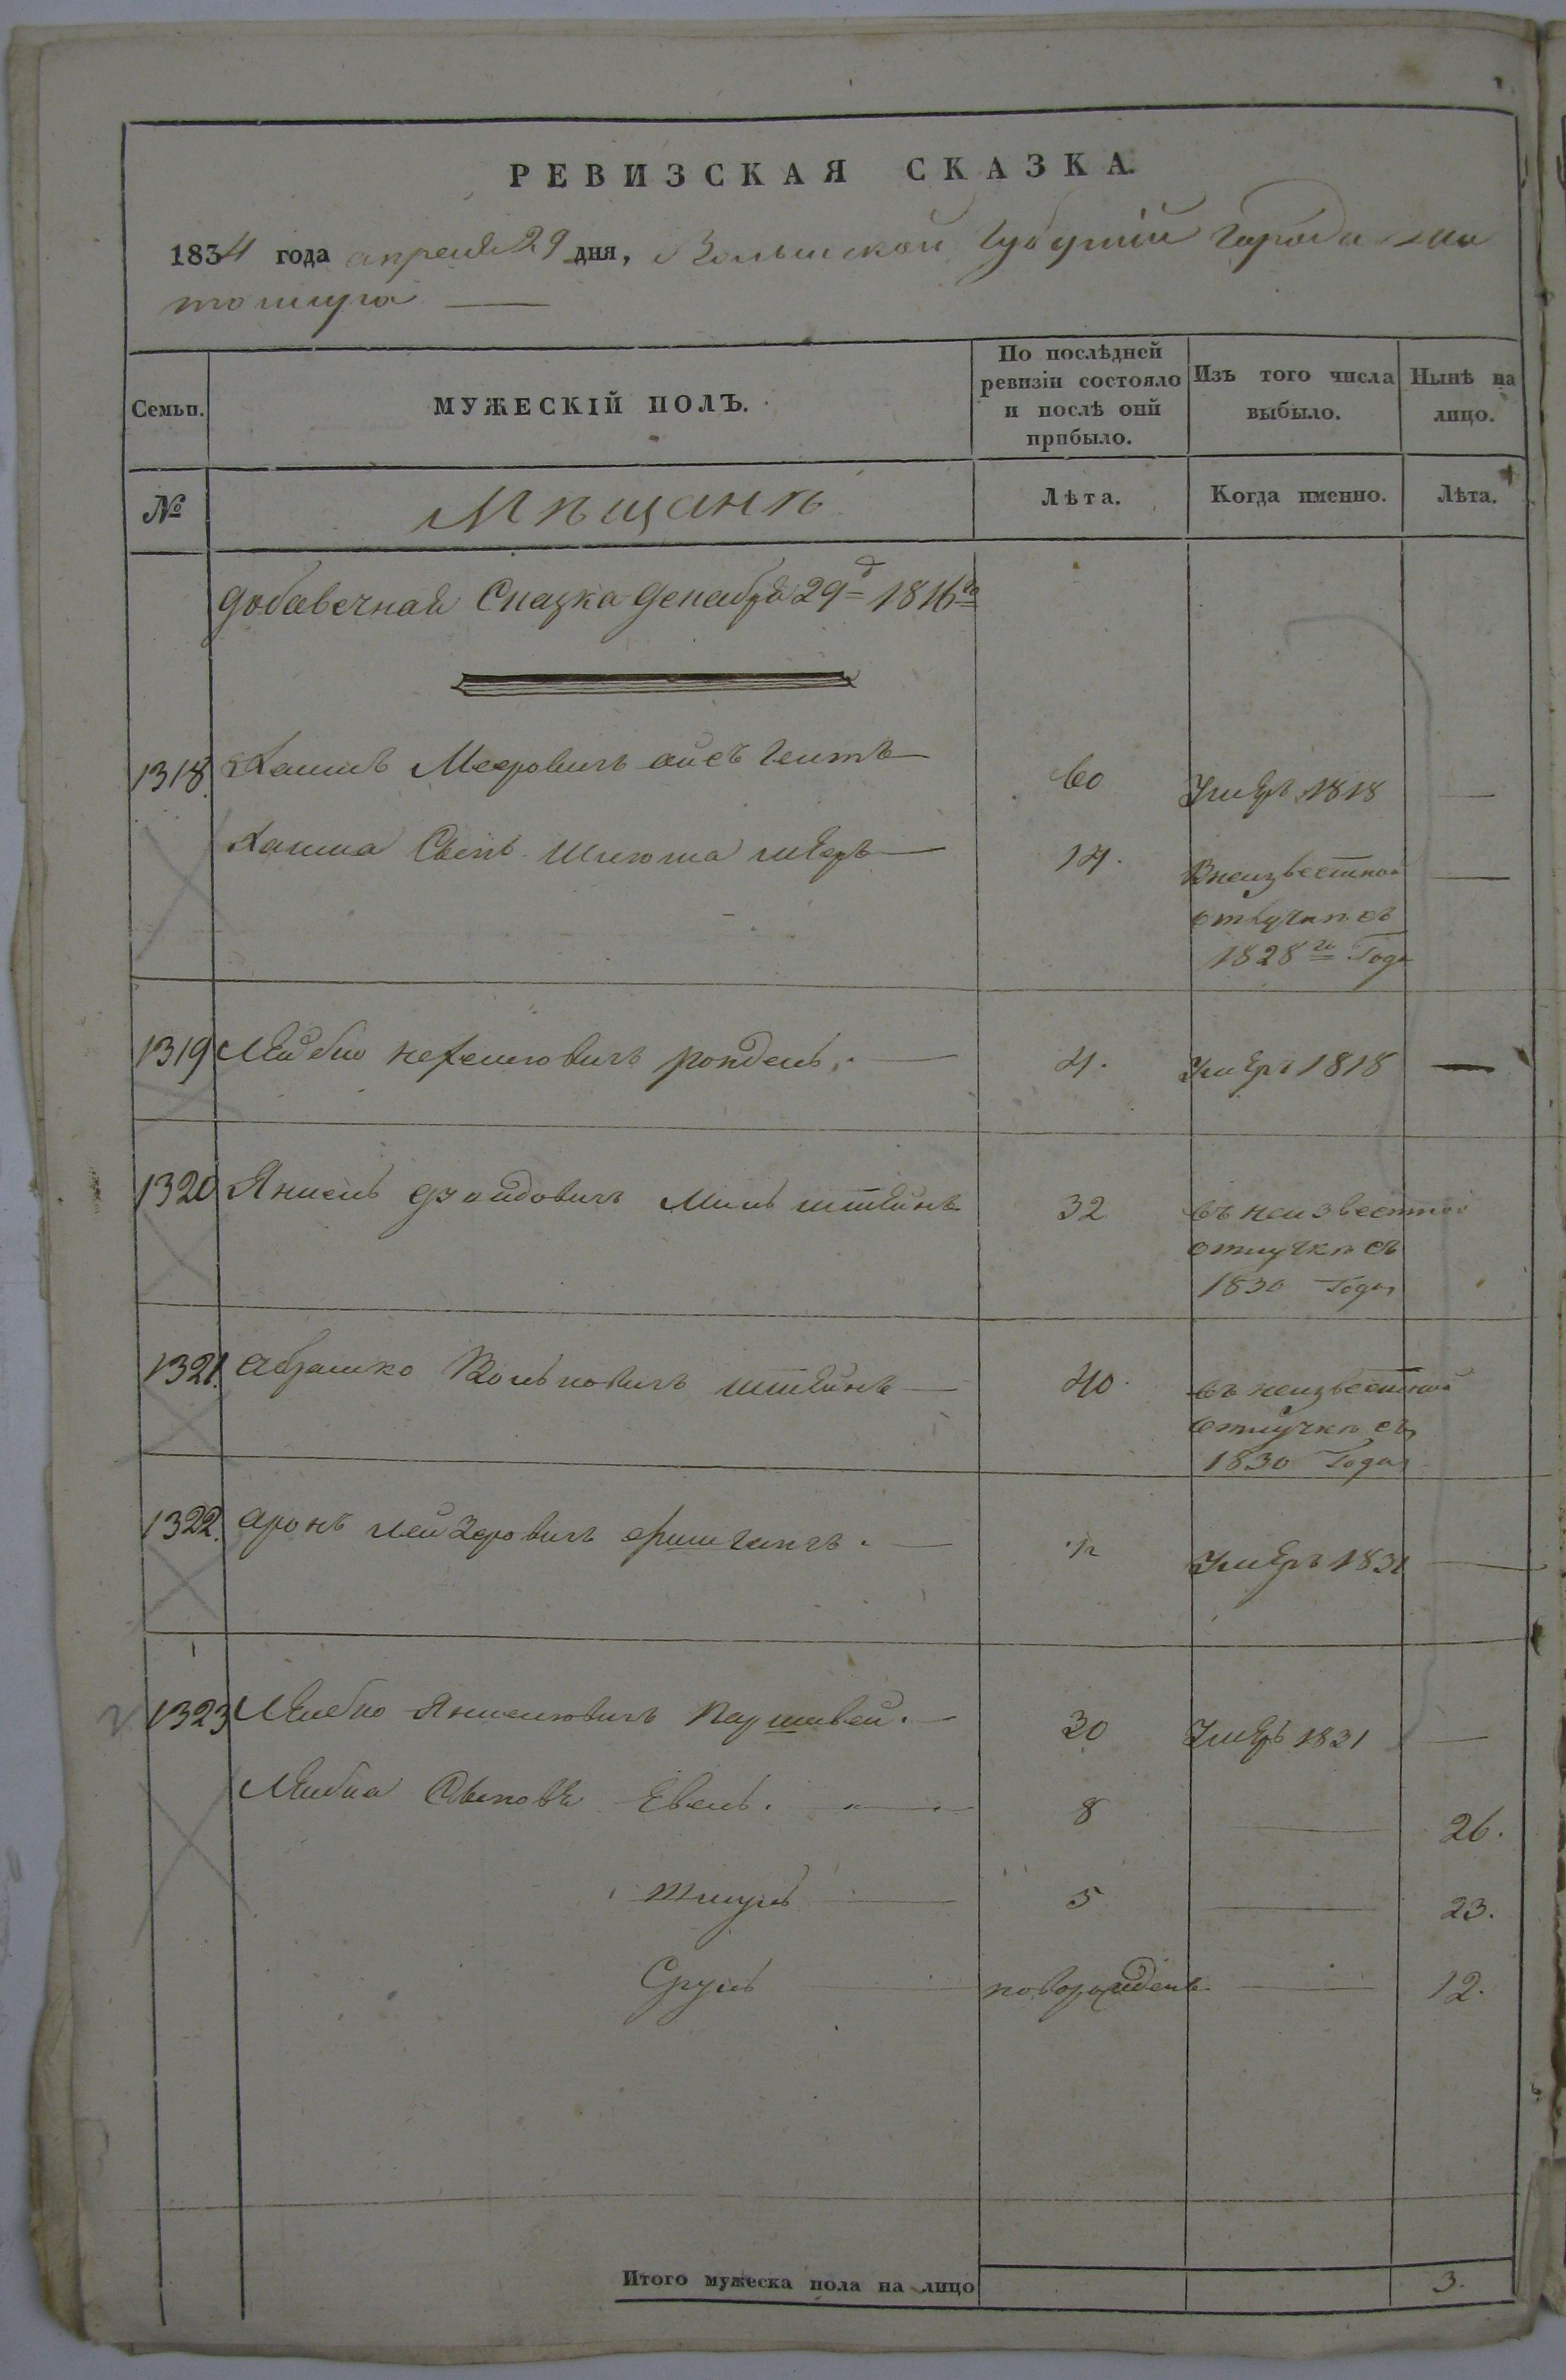 РЕВИЗСКАЯ СКАЗКА.
1834 года апреля 29 дня, Волынской Губернии Города Жи
томира
Семьи.
МУЖЕСКІЙ ПОЛЪ.
По послѣдней ревизіи состояло и послѣ оной прибыло.
Изъ того числа выбыло.
Нынѣ на лицо.
№
Мѣщанѣ
Лѣта.
Когда именно.
Лѣта.
добавечная Сказка декабря 29 д 1816 го
1318. Мееровичъ 60 Умеръ 1818
Сынъ Шлиома 14. В неизвестной
отлучкѣ съ
1828 го Года
1319 Лейбко 4. Умеръ 1818
1320 Янкель 32 въ неизвестной
отлучкѣ съ
1830 Года
1321. Абрамко Вольковичъ 40. въ неизвестной
отлучкѣ съ
1830 Года
1322. аронъ лейзеровичъ Умеръ 1831
1323 Лейбко Янкелювичъ 30 Умеръ 1831
Лейбка Сыновья 8 26.
5 23.
Сруль новорожденъ 12.
Итого мужеска пола на лицо 3.